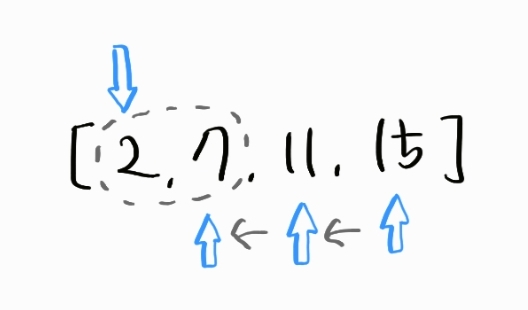 [2, 7, 11, 15]